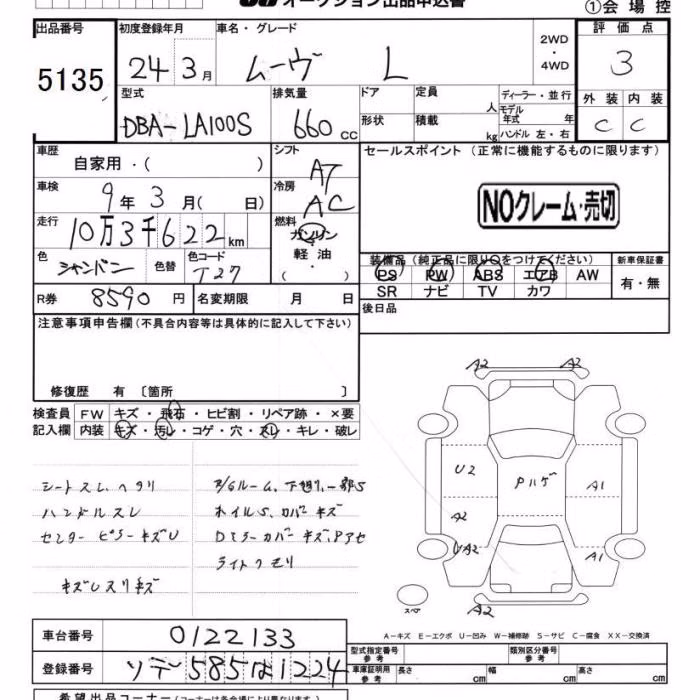 オークション出品申込書
①会場控
出品番号
5135
初度登録年月
24 3月
車名・グレード
ムーヴ L
2WD
・
4WD
評価点
3
外装 内装
C C
型式
DBA-LA100S
排気量
660 CC
ドア
定員 人
形状
積載 kg
ディーラー・並行
モデル
年式 年
ハンドル 左・右
車歴
自家用・( )
シフト
AT
セールスポイント (正常に機能するものに限ります)
NOクレーム・売切
車検
9年 3月( 日)
冷房
AC
走行
10万3千622km
燃料
ガソリン
軽油
・
( )
色
シャンパン
色替
色コード
T27
装備品(純正品に限り○をつけてください)
PS PW ABS エアB AW
SR ナビ TV カワ
新車保証書
有・無
R券 8590円
名変期限 月 日
後日品
注意事項申告欄(不具合内容等は具体的に記入して下さい)
修復歴 有 〔箇所 〕
検査員 FW キズ・飛石・ヒビ割・リペア跡・×要
記入欄 内装 キズ・汚レ・コゲ・穴・スレ・キレ・破レ
シートスレ、ヘタリ
ハンドルスレ
センターピラーキズU
キズレスリキズ
B/Gルーム、下廻り一部S
ホイルS、カバーキズ
DミラーカバーキズPアセ
ライトクモリ
A2 A2
U2 Pハゲ A1
A2
UA2 A1
スペア A2
A-キズ E-エクボ U-凹み W-補修跡 S-サビ C-腐食 XX-交換済
車台番号 0122133
登録番号 ソデ 585 は 1224
型式指定番号
参考
類別区分番号
参考
車庫証明用
参考
長さ cm 幅 cm 高さ cm
希望出品コーナー(コーナーは各会場により異なります)